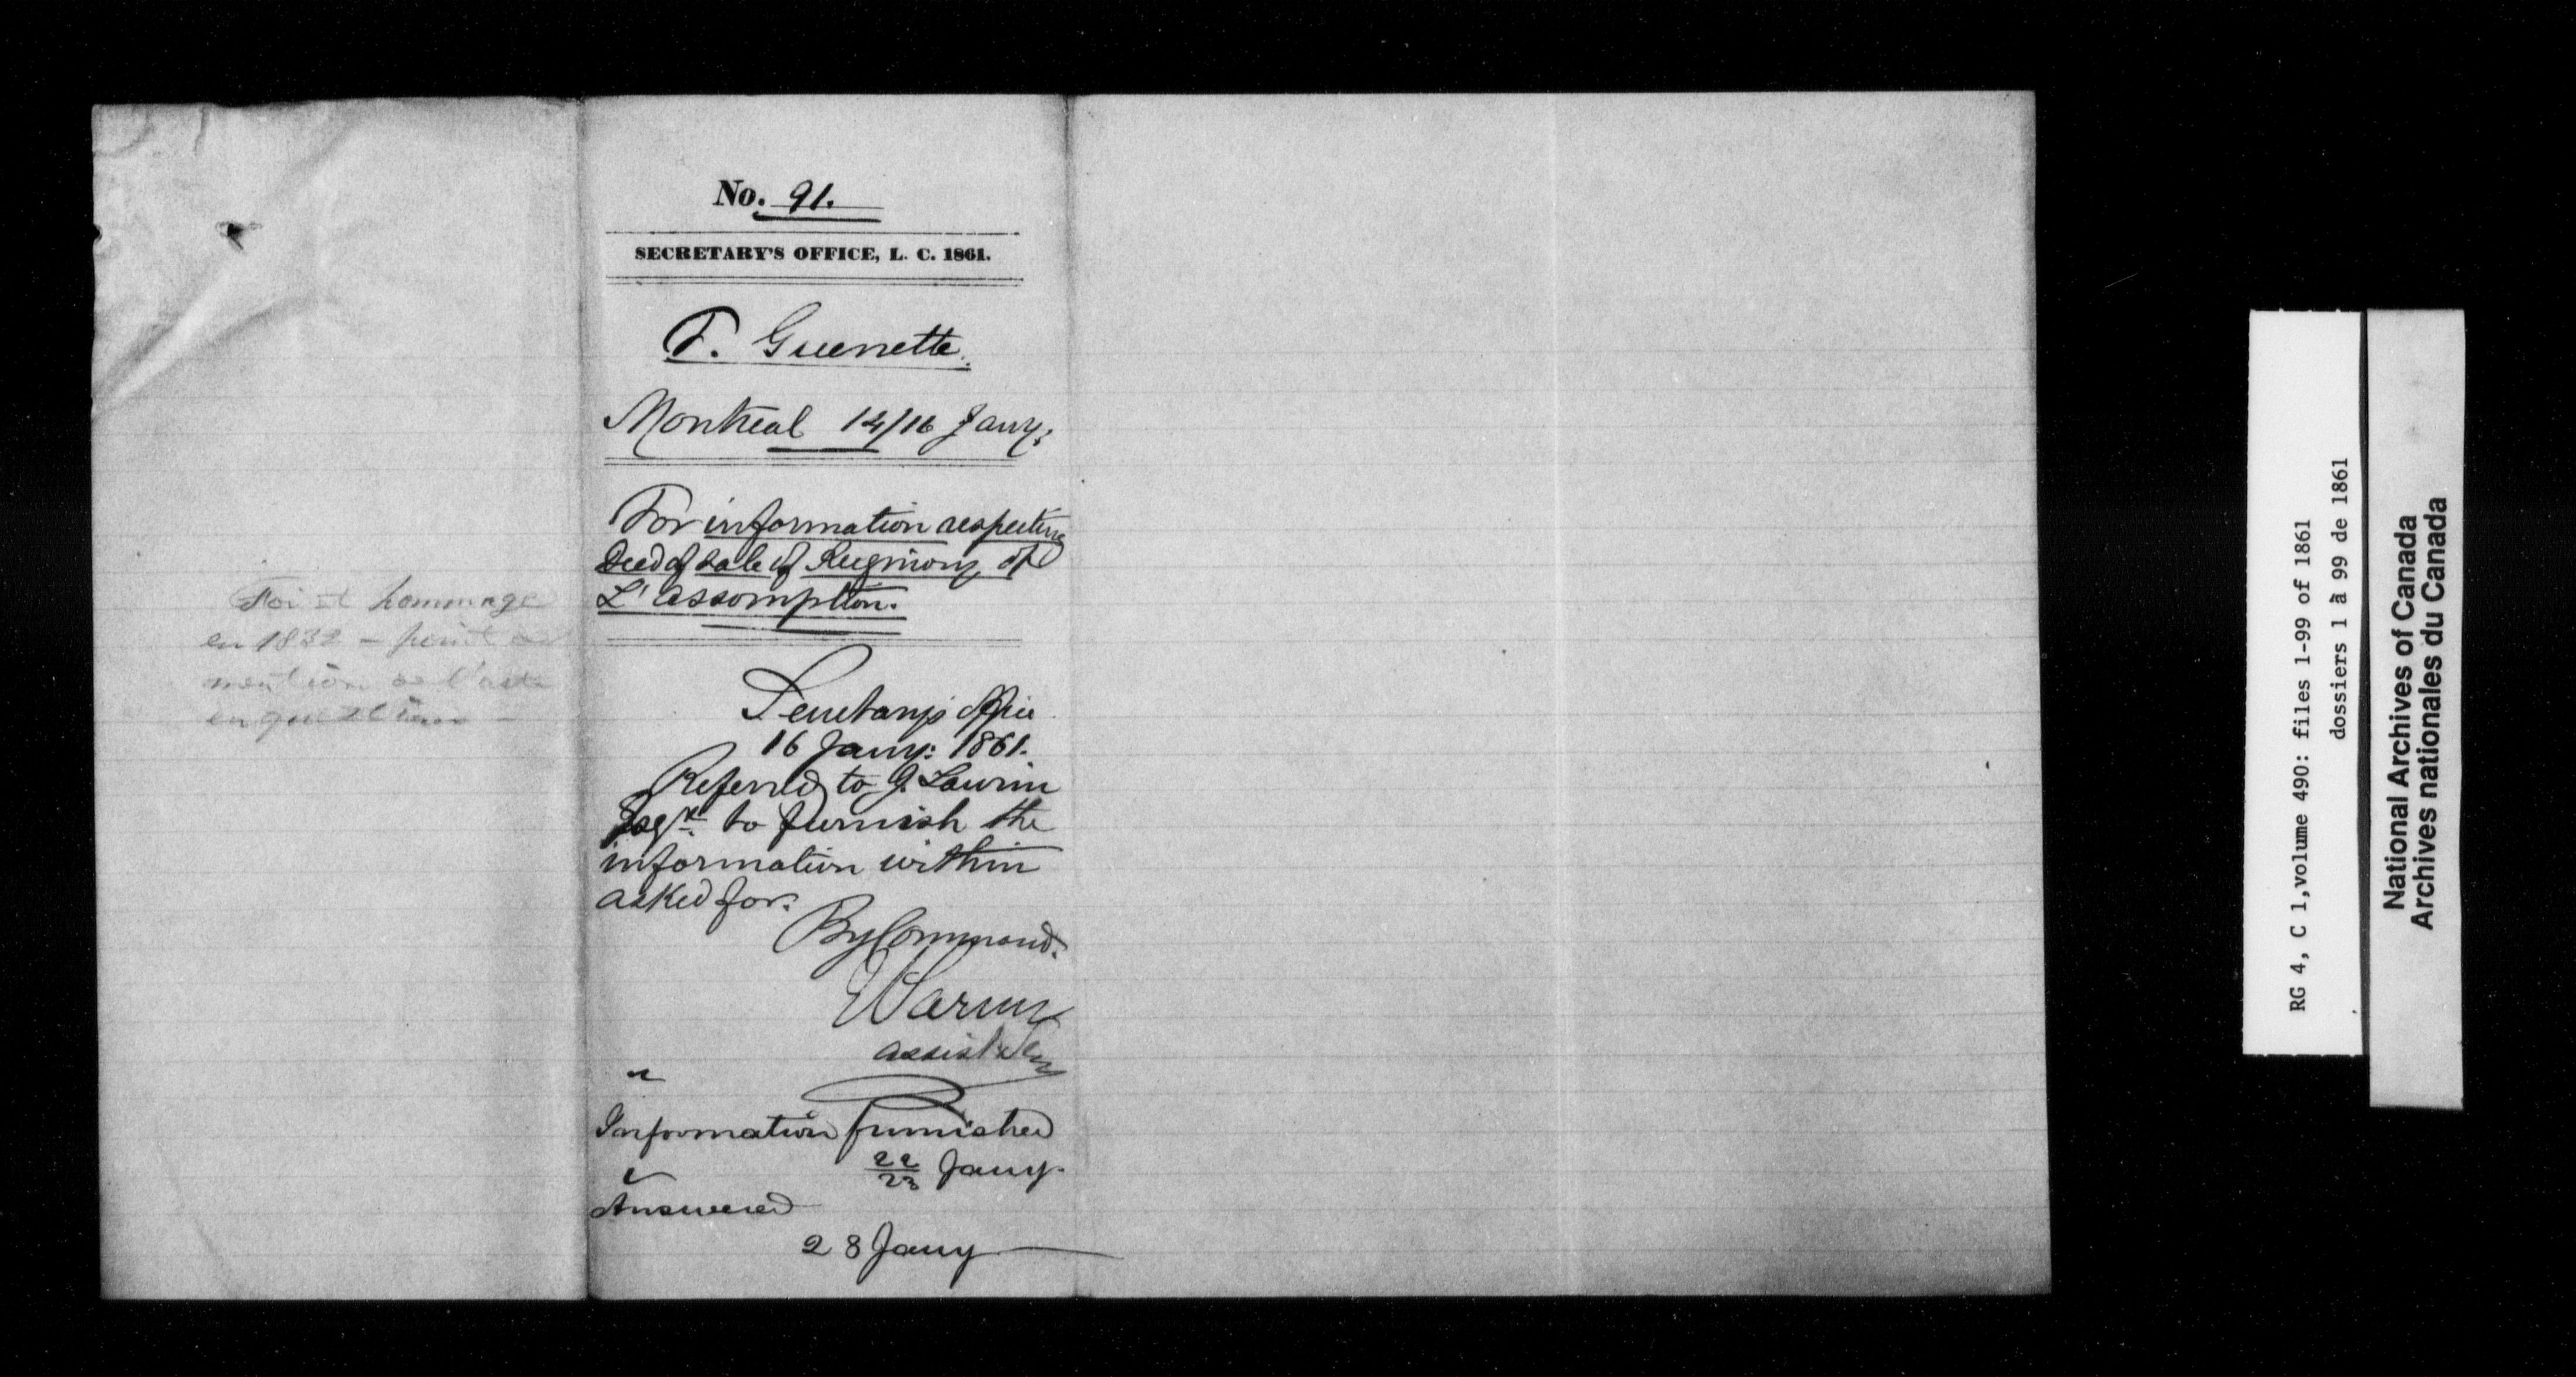 Foi et hommage
en 1832 – point de
mention de l'acte
en question –
No. 91.
SECRETARY'S OFFICE, L. C. 1861.
F. Guenette.
Montreal 14/16 Jany:
For information respecting
Deed of Sale of Seigniory of
L'Assomption.
Secretary's office
16 Jany: 1861.
Referred to G. Lawrin
Esqre. to furnish the
information within
asked for.
By Command.
assist Secy
Information furnished
22/23 Jany.
Answered
28 Jany
RG 4, C 1, volume 490: files 1-99 of 1861
dossiers 1 à 99 de 1861
National Archives of Canada
Archives nationales du Canada